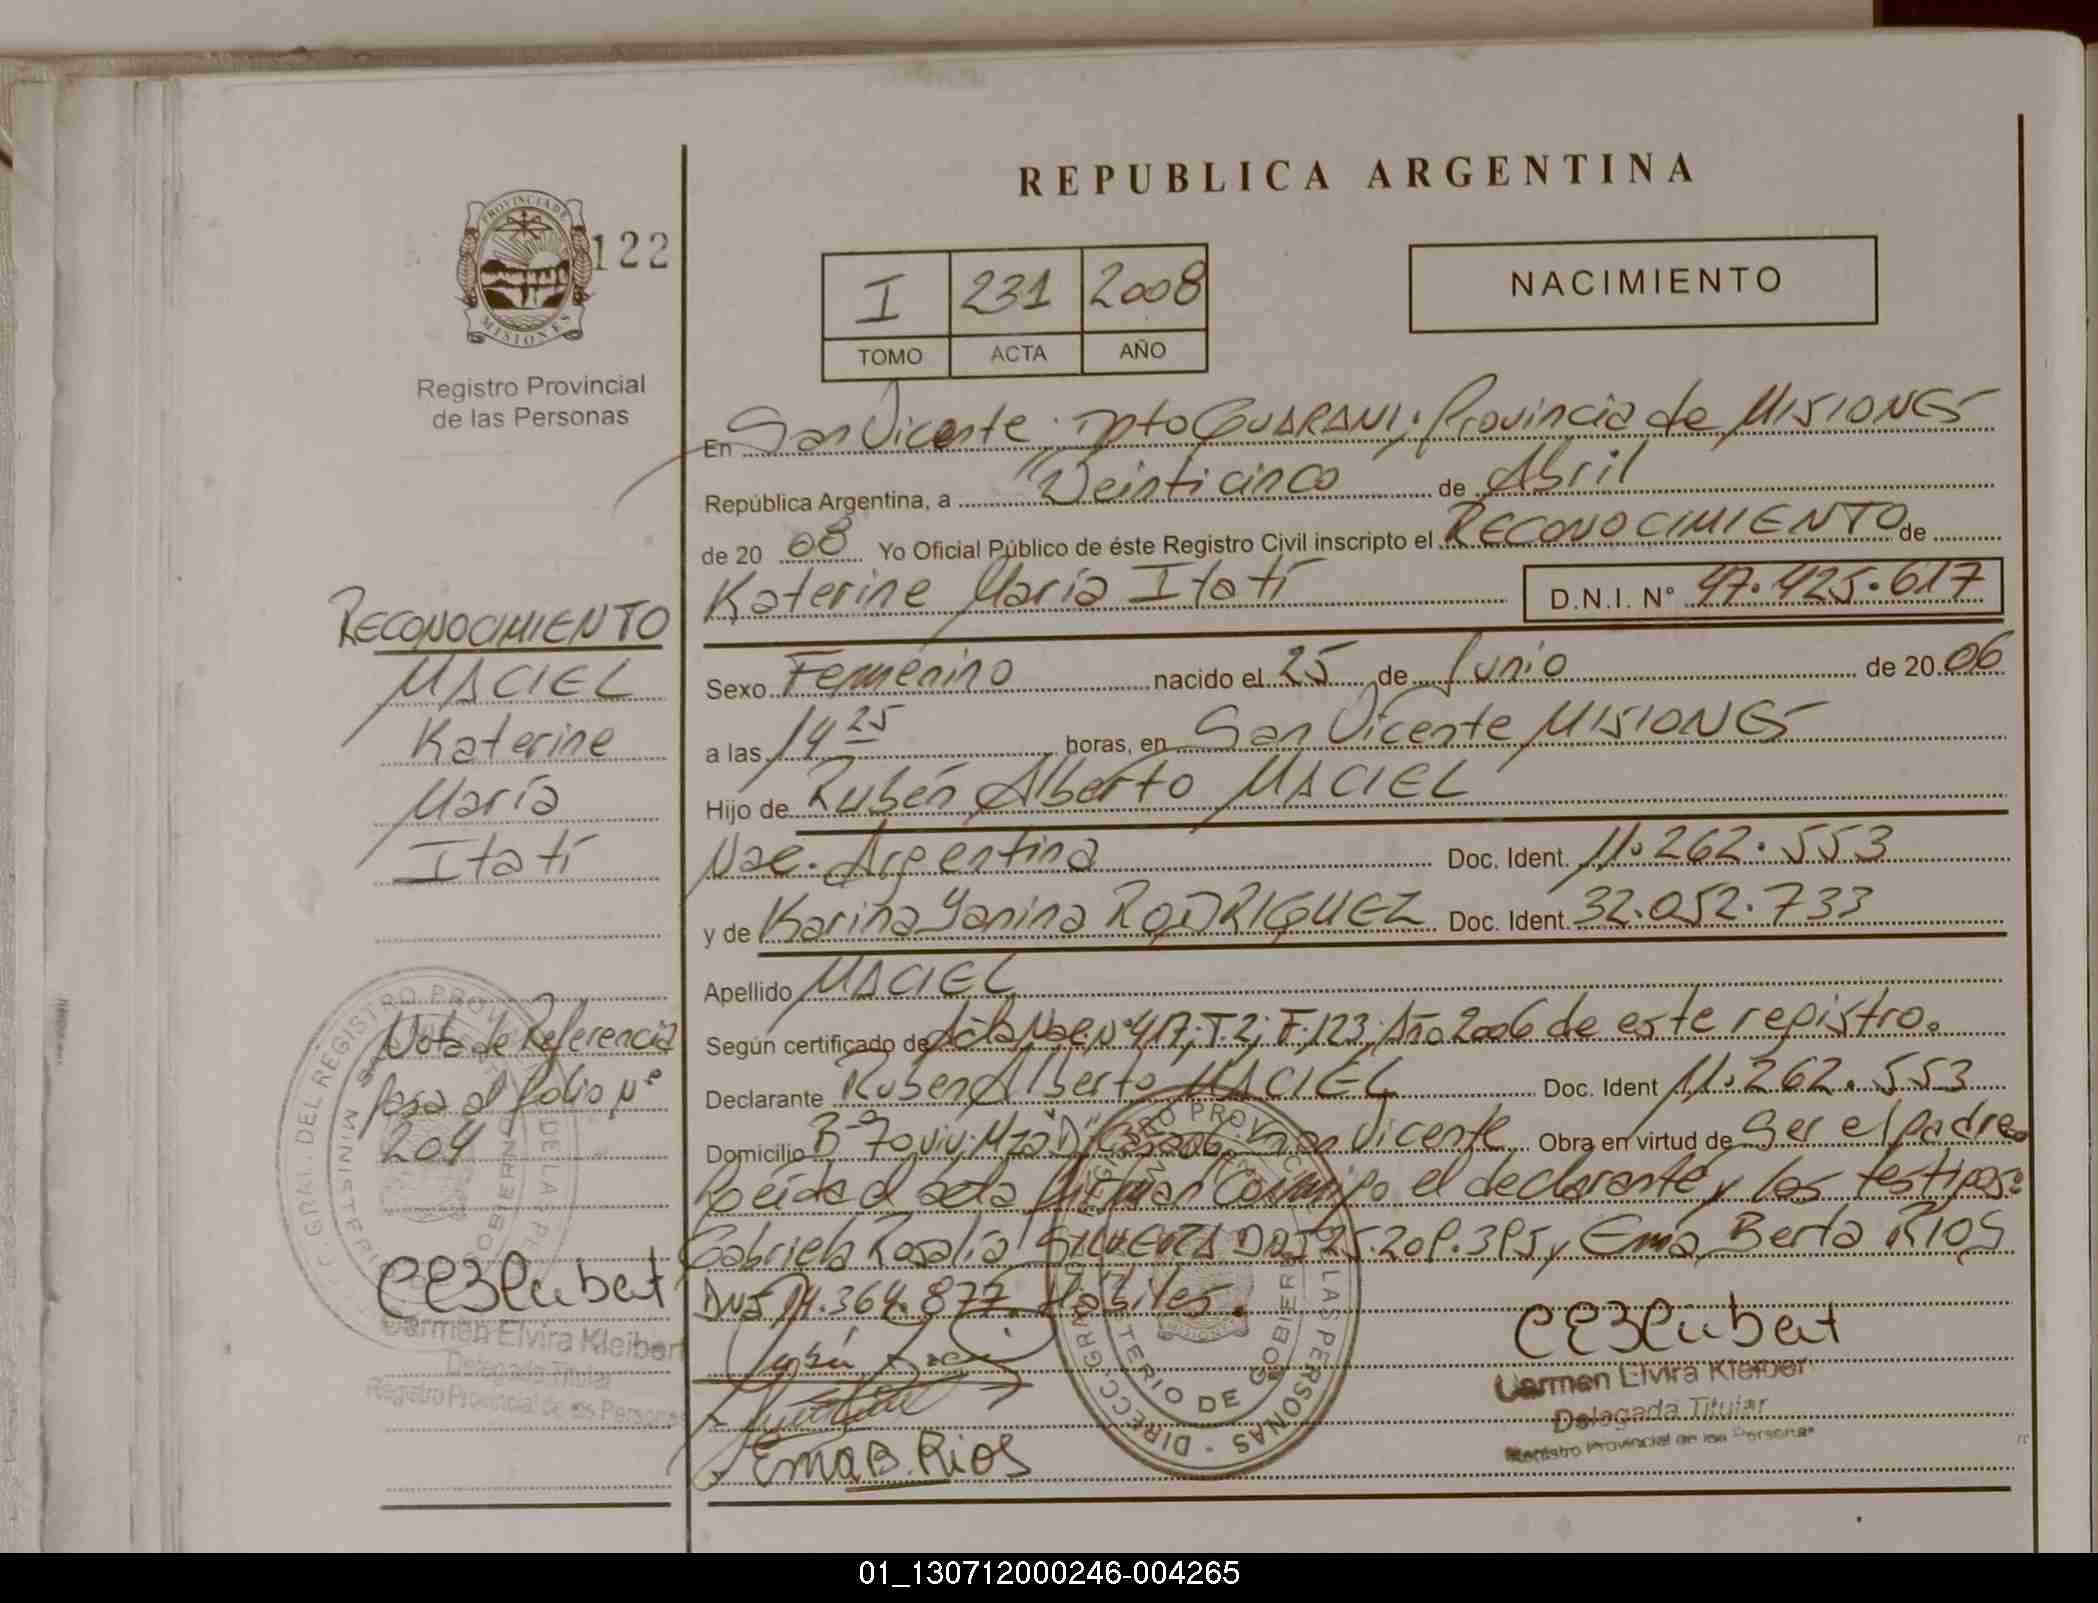 REPUBLICA ARGENTINA
PROVINCIA DE
MISIONES
122
Registro Provincial
de las Personas
I 231 2008
TOMO ACTA AÑO
NACIMIENTO
En San Vicente Dpto GUARANI; Provincia de MISIONES
República Argentina, a Veinticinco de Abril
de 20 08 Yo Oficial Público de éste Registro Civil inscripto el RECONOCIMIENTO de
Katerine María Itatí D.N.I. N° 47.425.617
Sexo Femenino nacido el 25 de Junio de 20 06
a las 14 25 horas, en San Vicente MISIONES
Hijo de Rubén Alberto MACIEL
Nac. Argentina Doc. Ident. 11.262.553
y de Karina Yanina RODRIGUEZ Doc. Ident. 32.052.733
Apellido MACIEL
Según certificado de Acta Nac. N° 417; T. 2; F. 123; Año 2006 de este registro.
Declarante Ruben Alberto MACIEL Doc. Ident 11.262.553
Domicilio B° 70 viv. Mza "D" San Vicente Obra en virtud de Ser el padre.
Leída el acta firman Conmigo el declarante y los testigos:
Gabriela Rosalía DNI 25.209.395 y Ema Berta RIOS
DNI 14.364.877. Hábiles.
Ema B. Rios
Carmen Elvira Kleibert
Delegada Titular
Registro Provincial de las Personas
RECONOCIMIENTO
MACIEL
Katerine
María
Itatí
Nota de Referencia
pasa al folio N°
204
Carmen Elvira Kleibert
Delegada Titular
Registro Provincial de las Personas
01_130712000246-004265